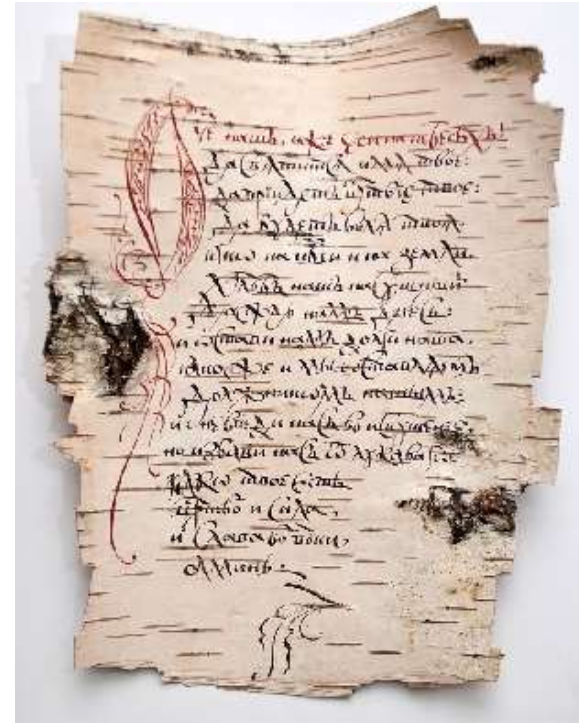 Ѻ҃че нашъ, иже еси на нб҃сѣхъ!
Да свѧтитсѧ имѧ твое:
Да прїидетъ црⷭ҇твїе твое:
Да будетъ волѧ твоѧ
ꙗко на нб҃си и на земли.
Хлѣбъ нашъ насущный
Даждь намъ днесь:
и ѡстави намъ долги наша,
ꙗкоже и мы ѡставлѧемъ
Должникомъ нашимъ:
и не введи насъ во искушенїе
но избави насъ ѿ лукаваго
ꙗко твое есть
црⷭ҇тво и сила,
и слава во вѣки,
Аминь: